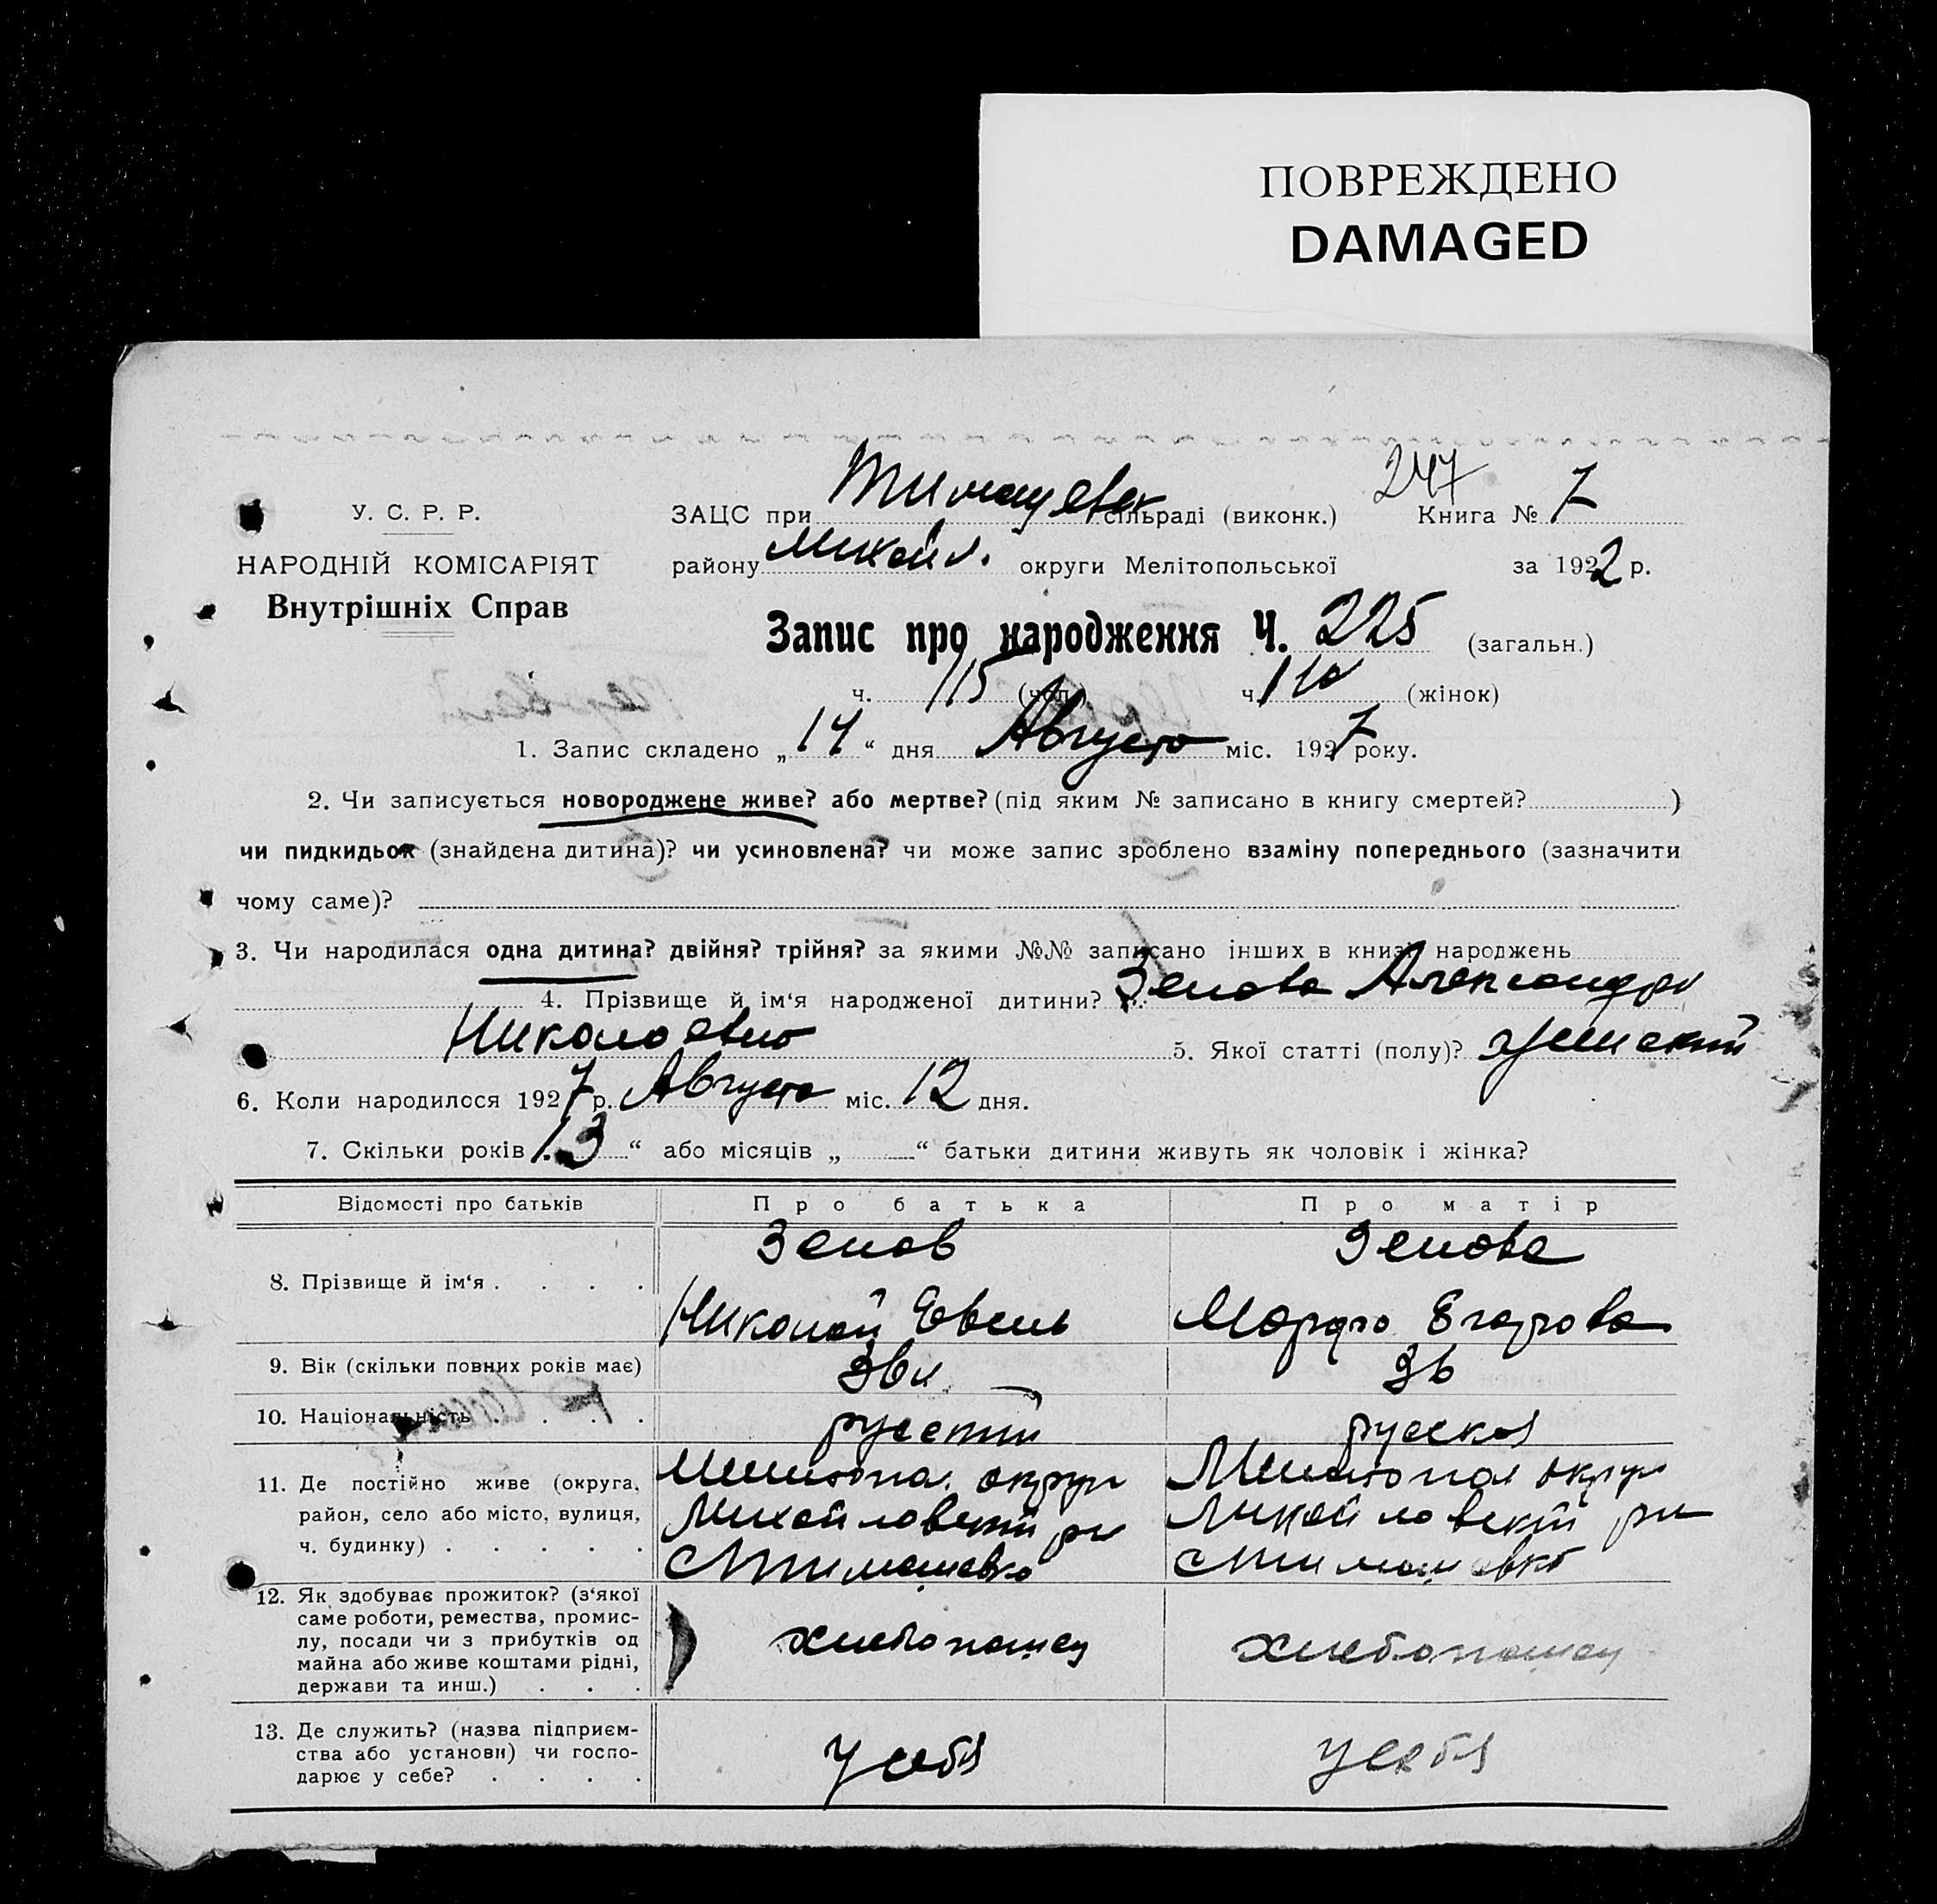 ПОВРЕЖДЕНО
DAMAGED
247
У. С. Р. Р.
ЗАЦС при Тимашевск сільраді (виконк.) Книга № 7
НАРОДНІЙ КОМІСАРІЯТ
району Михайл. округи Мелітопольської за 1922 р.
Внутрішніх Справ
Запис про народження Ч. 225 (загальн.)
ч. 115 (чол.) ч. 110 (жінок)
1. Запис складено „14“ дня Августа міс. 1927 року.
2. Чи записується новороджене живе? або мертве? (під яким № записано в книгу смертей? )
чи пидкидьок (знайдена дитина)? чи усиновлена? чи може запис зроблено взаміну попереднього (зазначити
чому саме)?
3. Чи народилася одна дитина? двійня? трійня? за якими №№ записано інших в книзі народжень
4. Прізвище й ім‘я народженої дитини? Зенова Александра
Николаевна 5. Якої статті (полу)? женский
6. Коли народилося 1927 р. Августа міс. 12 дня.
7. Скільки років 13 “ або місяців „ “ батьки дитини живуть як чоловік і жінка?
Відомості про батьків Про батька Про матір
Зенов Зенова
8. Прізвище й ім‘я . . . .
Николай Марфа Егорова
9. Вік (скільки повних років має)
10. Національність . . . . русский русская
11. Де постійно живе (округа,
район, село або місто, вулиця,
ч. будинку) . . . . .
округ округ
Михайловский рн Михайловский рн
с Тимашевка с Тимашевка
12. Як здобуває прожиток? (з‘якої
саме роботи, ремества, промис-
лу, посади чи з прибутків од
майна або живе коштами рідні,
держави та инш.) . . .
хлебопашец хлебопашец
13. Де служить? (назва підприєм-
ства або установи) чи госпо-
дарює у себе? . . . .
у себя у себя